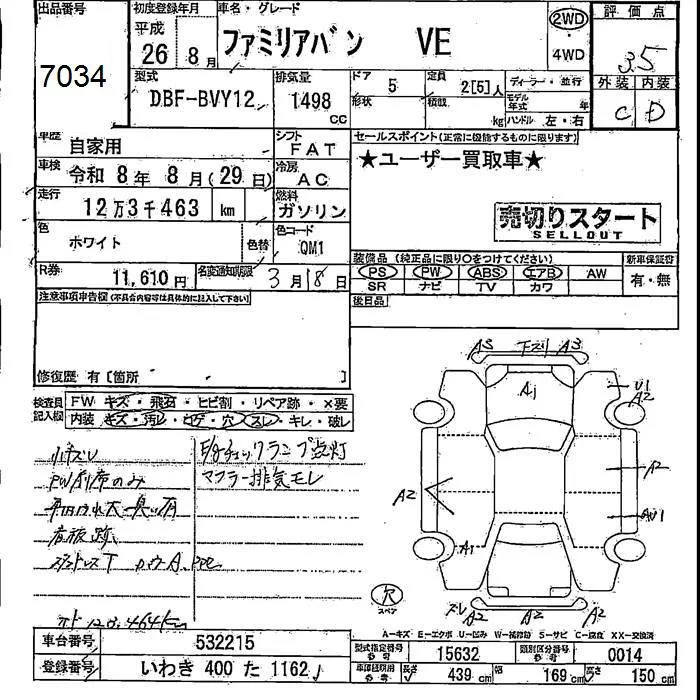 出品番号
7034
初度登録年月
平成
26 8月
車名・グレード
ファミリアバン VE
2WD
4WD
評価点
3.5
外装 内装
C D
型式
DBF-BVY12
排気量
1498
cc
ドア 5
形状
定員 2[5]人
積載 kg
ディーラー・並行
モデル年式 年
ハンドル 左・右
車歴 自家用
シフト FAT
車検 令和 8年 8月(29日)
冷房 AC
走行 12万3千463 km
燃料 ガソリン
色 ホワイト
色替
色コード QM1
R券 11,610円
名変通知期限 3月18日
セールスポイント(正常に機能するものに限ります)
★ユーザー買取車★
売切りスタート
SELLOUT
装備品(純正品に限り○をつけてください)
新車保証書
PS PW ABS エアB AW
SR ナビ TV カワ
有・無
後日品
注意事項申告欄(不具合内容等は具体的に記入して下さい)
修復歴 有[箇所 ]
検査員記入欄
FW キズ・飛石・ヒビ割・リペア跡・×要
内装 キズ・汚レ・コゲ・穴・スレ・キレ・破レ
小キズU
E/gチェックランプ点灯
マフラー排気モレ
A3 下ズリ A3
Aj
U1
A2
A2
A2
AU1
A1
ズレ A2 A2 A2
欠
スペア
A-キズ E-エクボ U-凹み W-補修跡 S-サビ C-腐食 XX-交換済
車台番号 532215
登録番号 いわき 400 た 1162
型式指定番号 参考 15632
類別区分番号 参考 0014
長さ 439 cm 幅 169 cm 高さ 150 cm